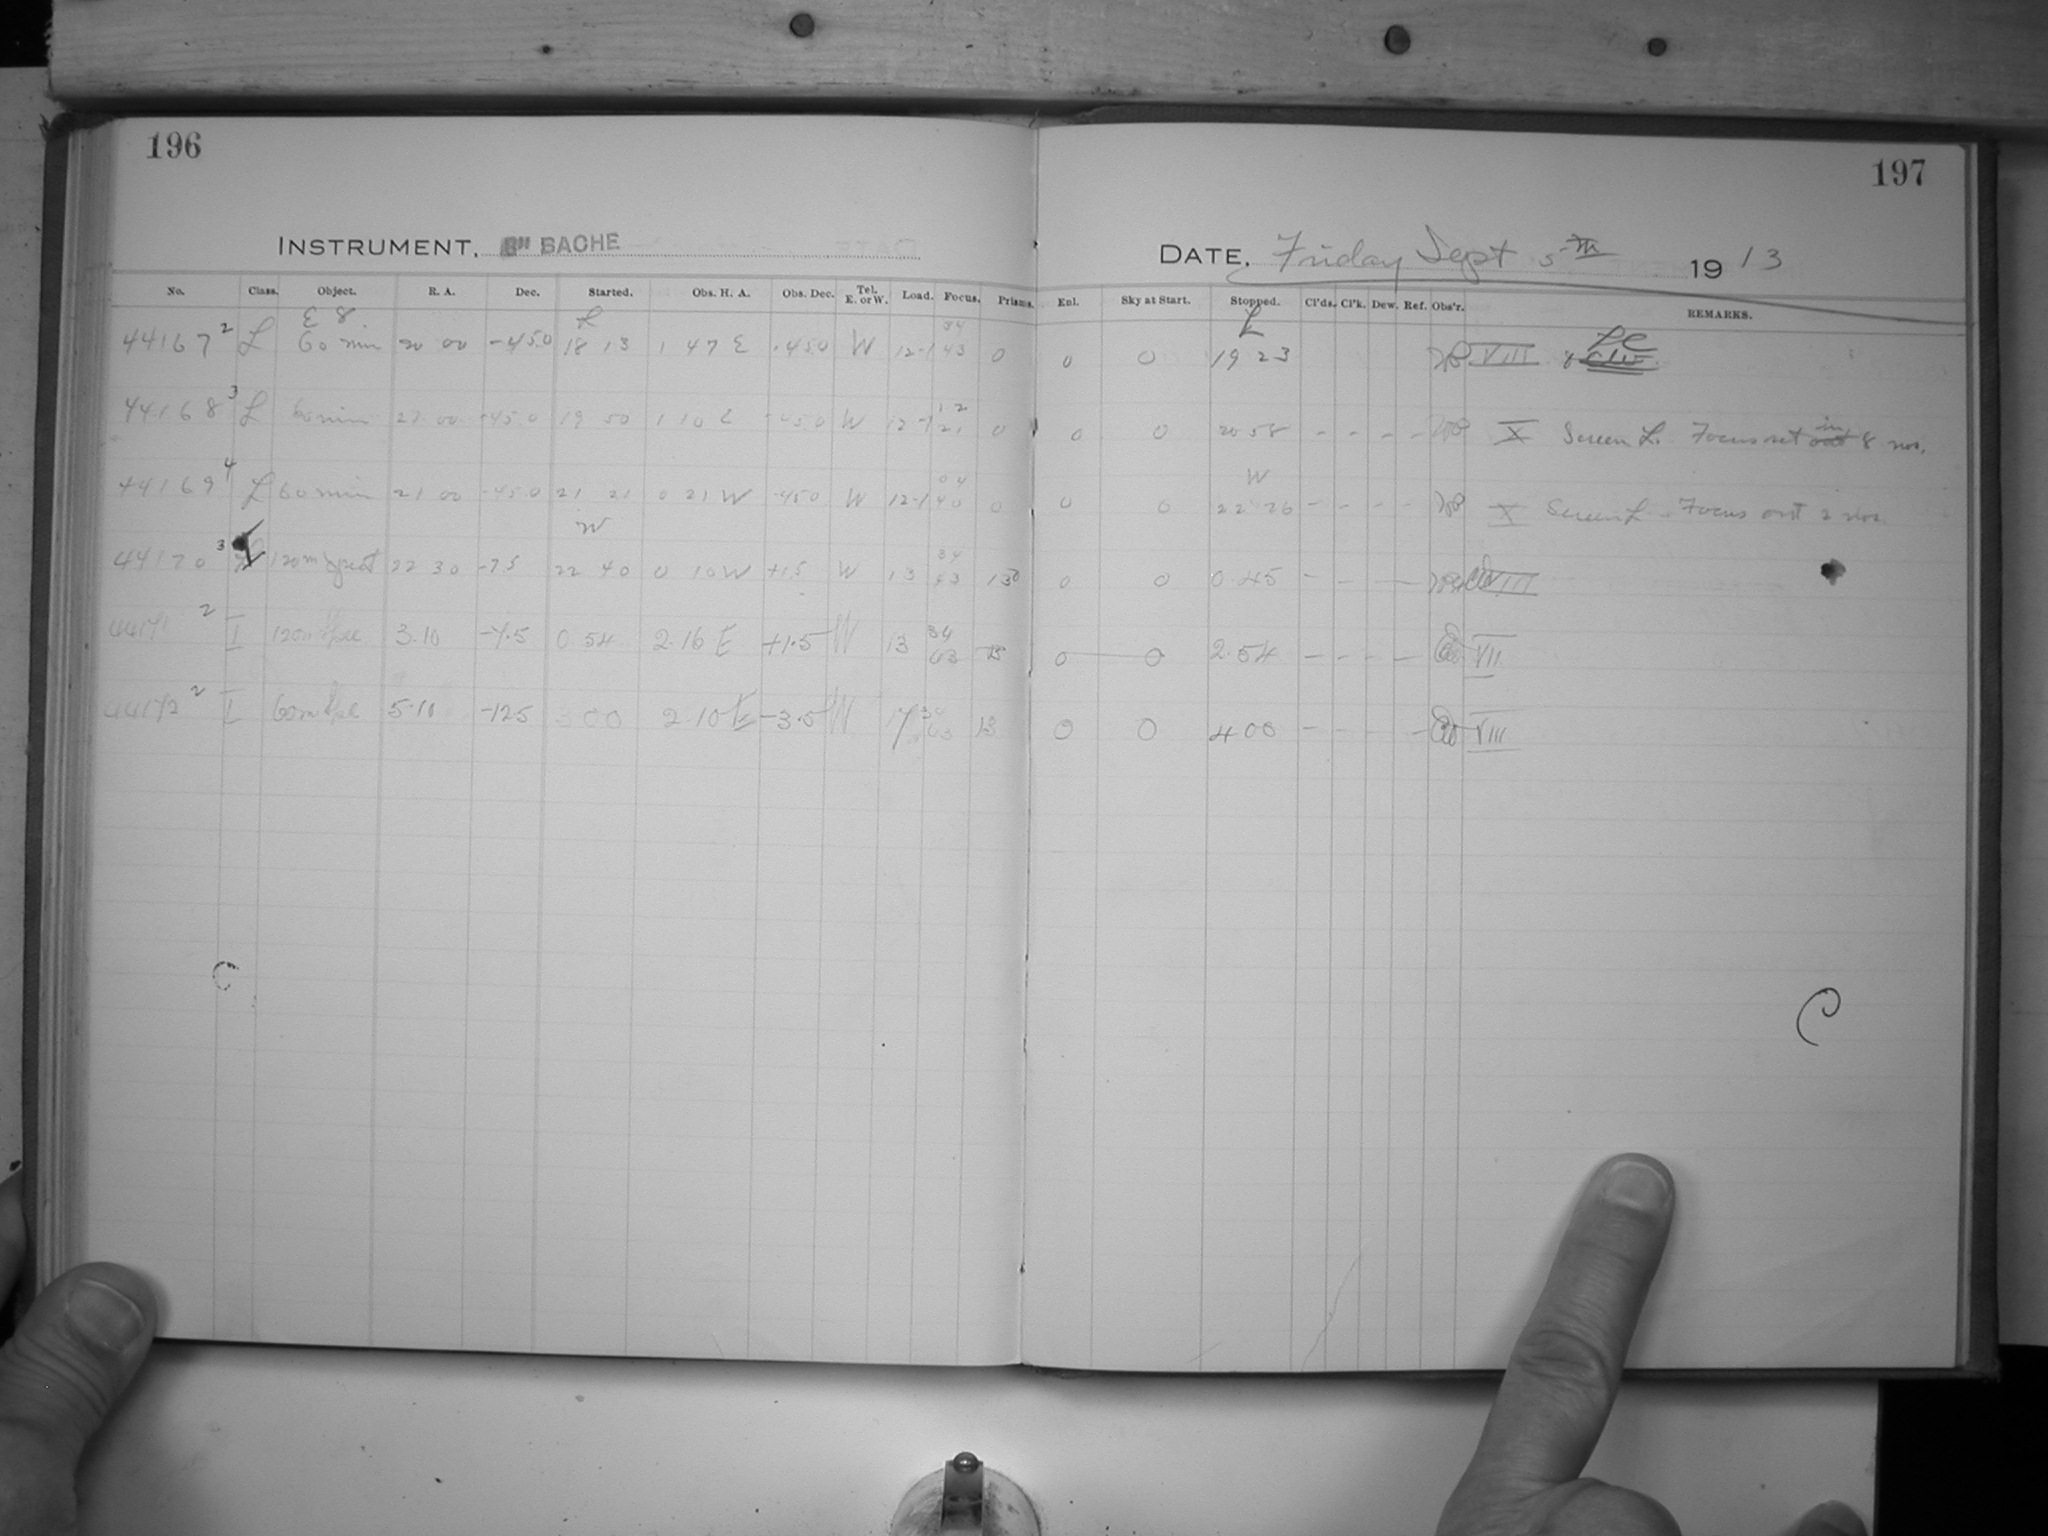 196
197
INSTRUMENT, 8" BACHE
DATE, Friday Sept 5th 1913
No. Class. Object. R. A. Dec. Started. Obs. H. A. Obs. Dec. Tel. E. or W. Load. Focus. Prisms. Enl. Sky at Start. Stopped. Cl'ds. Cl'k. Dew. Ref. Obs'r. REMARKS.
E 8 L 34 L LC
44167 2 L 60 min 20 00 -45.0 18 13 1 47 E -45.0 W 12-1 43 0 0 0 19 23 VIII
44168 3 L 60 min 21 00 -45 0 19 50 1 10 E -45.0 W 12-1 12 21 0 0 0 20 58 - - - - X Screen L. Focus set out in 8 nos.
44169 4 L 60 min 21 00 -45 0 21 21 0 21 W -45.0 W 12-1 04 40 0 0 0 W 22 26 - - - - X Screen L - Focus out 2 nos.
W
44170 3 120m 22 30 -7.5 22 40 0 10 W +1.5 W 13 34 43 13 0 0 0 0 45 - - - - VIII
44171 2 I 120m Spec 3.10 -7.5 0 54 2.16 E +1.5 W 13 34 43 13 0 0 2.54 - - - - VII
44172 2 I 60m Spec 5.10 -12.5 3 00 2.10 E -3.5 W 13 0 0 4 00 - - - - VIII